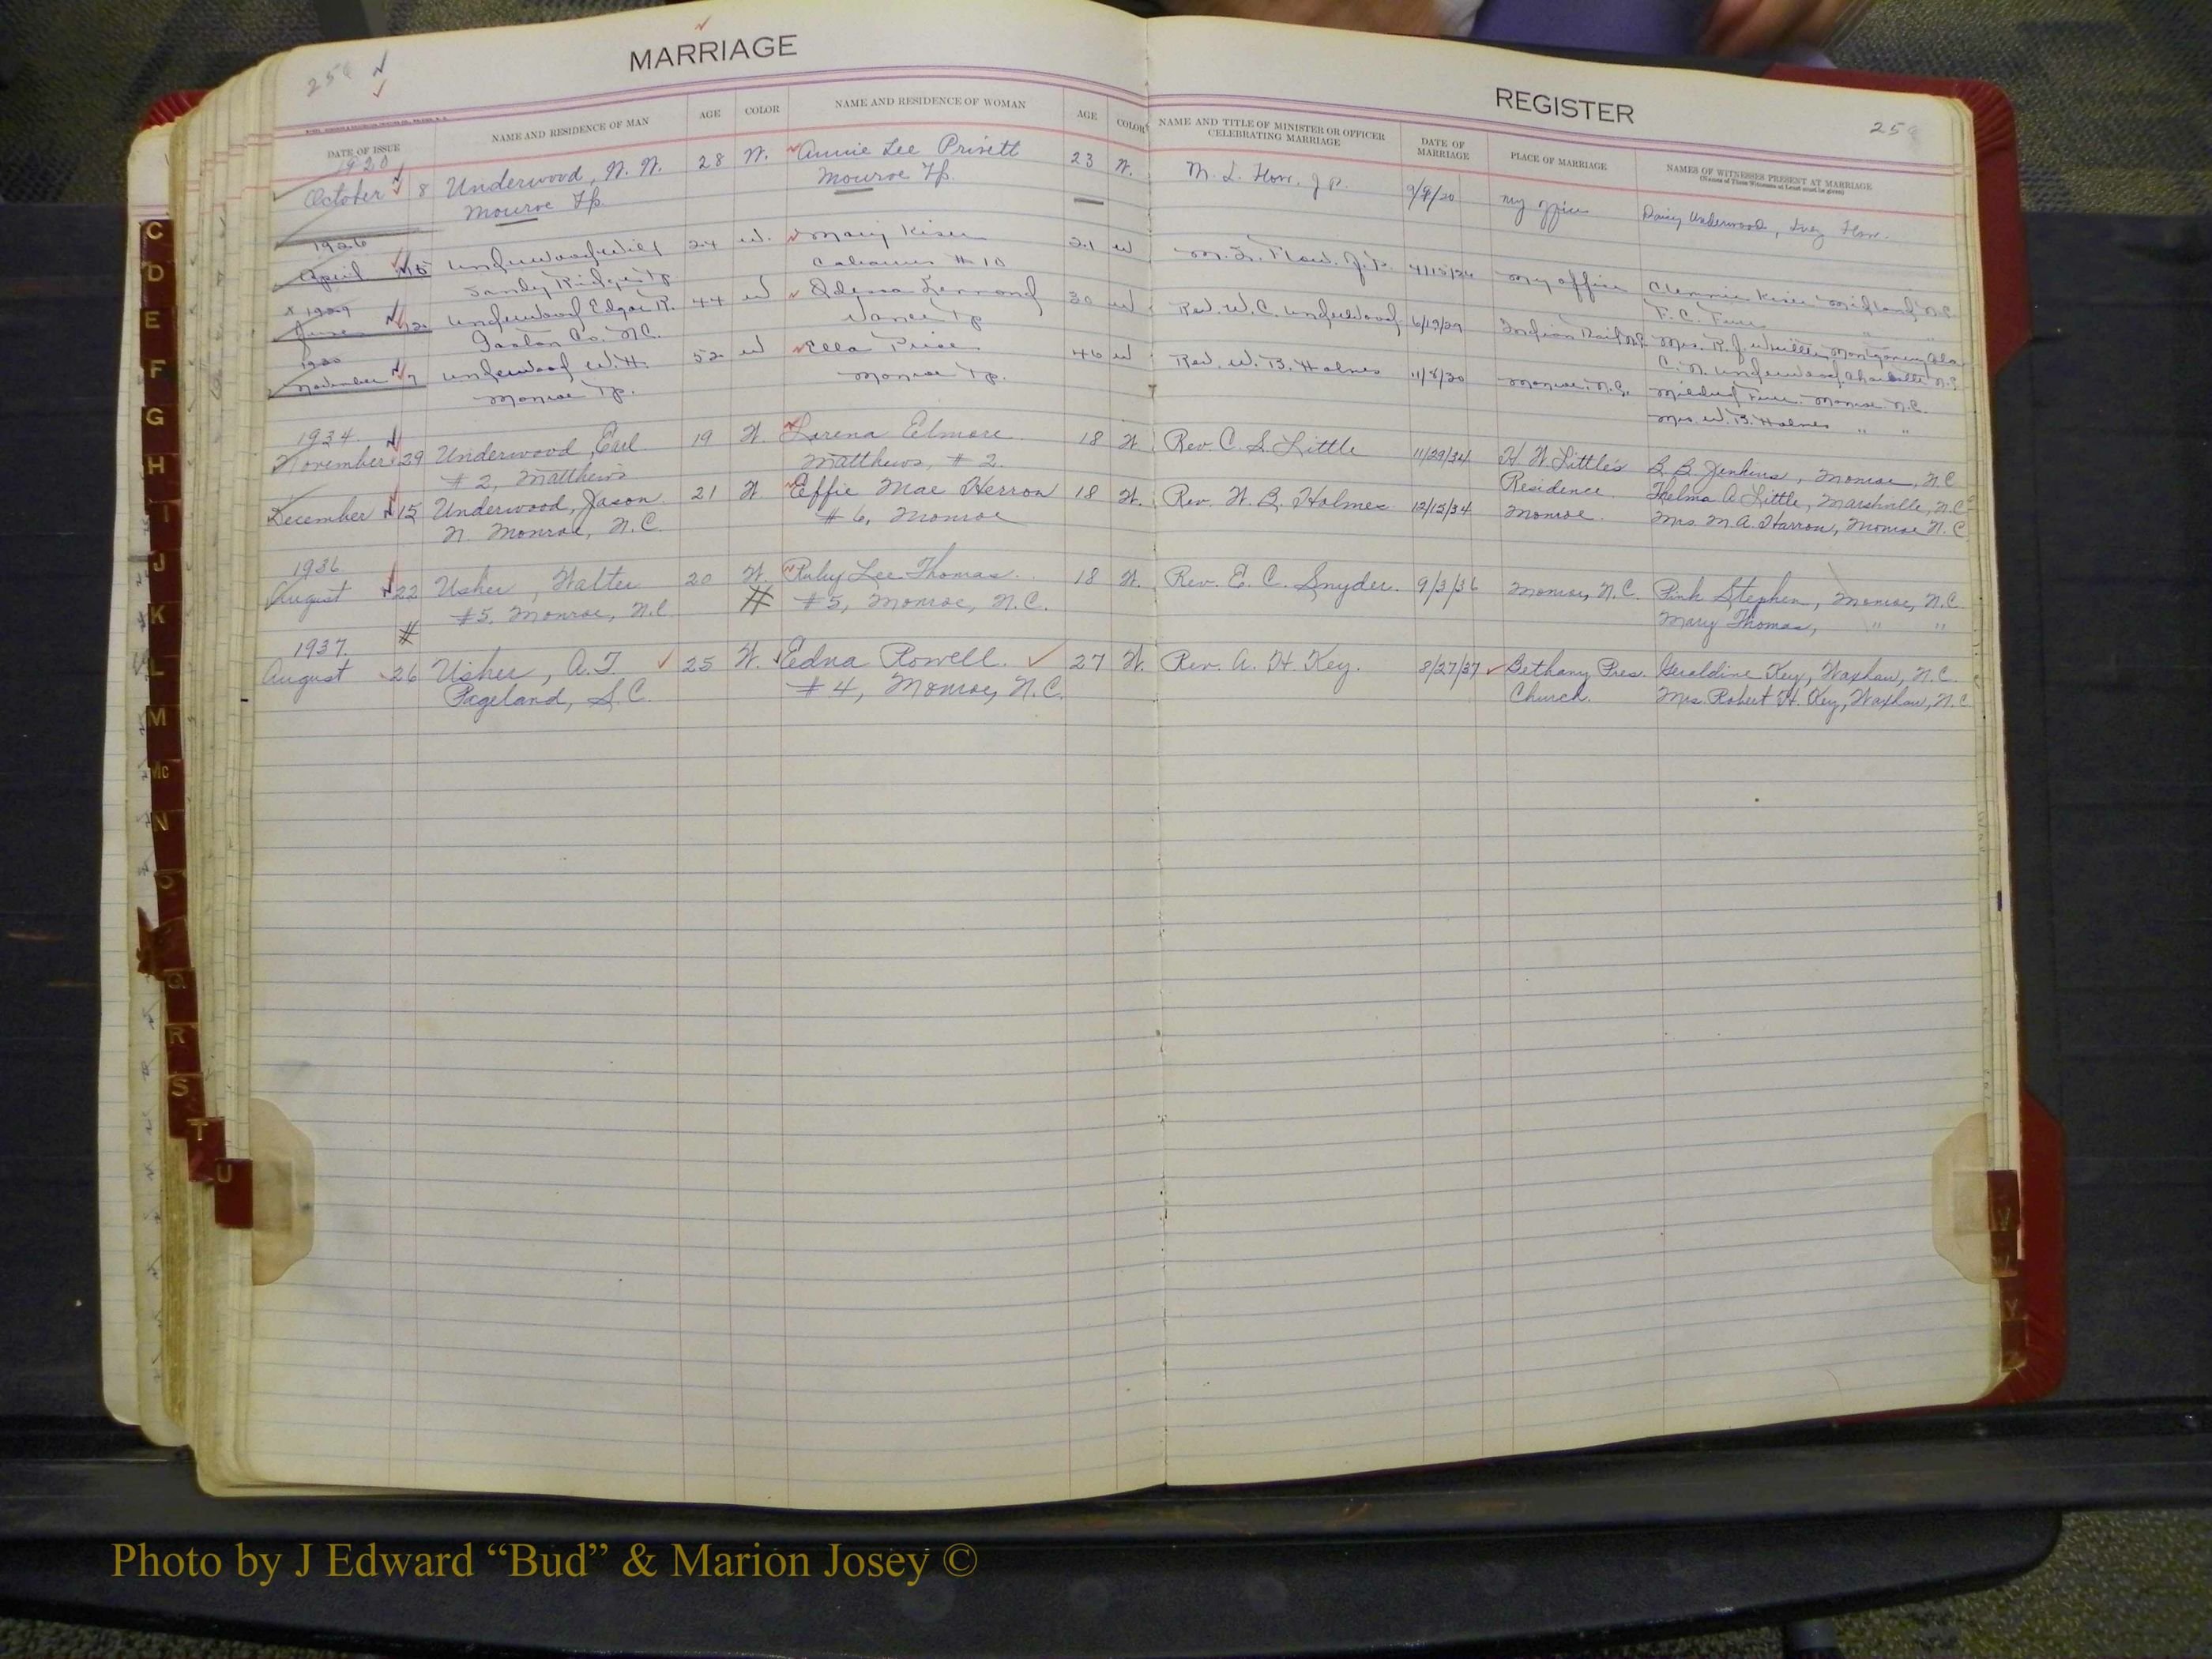 MARRIAGE
REGISTER
DATE OF ISSUE NAME AND RESIDENCE OF MAN AGE COLOR NAME AND RESIDENCE OF WOMAN AGE COLOR NAME AND TITLE OF MINISTER OR OFFICER CELEBRATING MARRIAGE DATE OF MARRIAGE PLACE OF MARRIAGE NAMES OF WITNESSES PRESENT AT MARRIAGE
1920
October 8 Underwood, N. W. 28 W. Annie Lee Privett 23 W. M. L. Flow. J P. 9/8/20 my office Daisy Underwood, Inez Flow.
Monroe Tp. Monroe Tp.
1926
April 15 Underwood Will 24 W. Mary Kiser 21 W M. L. Flow. J. P. 4/15/26 My office Clemmie Kiser Midland N.C.
Sandy Ridge Tp Cabarrus # 10 F. C.
1929
June Underwood Edgar R. 44 W Odessa Lemmond 30 W Rev. W. C. Underwood 6/19/29 Indian Trail N.C. Mrs. R. J. Montgomery Ala
Gaston Co. N.C. Vance Tp C. N. Underwood Charlotte N.C.
1930
November 7 Underwood W. H. 52 W Ella Price 40 W Rev. W. B. Holmes 11/8/30 Monroe. N.C. Mildred Monroe. N.C.
Monroe Tp. Monroe Tp. Mrs W. B. Holmes " "
1934
November 29 Underwood, Earl 19 W. Lorena Elmore 18 W. Rev. C. S. Little 11/29/34 H. W. Little's B. B. Jenkins, Monroe, N.C
# 2, Matthews Matthews, # 2. Residence Thelma A. Little, Marshville, N.C.
December 15 Underwood, Jason 21 W Effie Mae Herron 18 W. Rev. W. B. Holmes 12/15/34 Monroe. Mrs. M. A. Harron, Monroe N.C
N. Monroe, N.C. # 6, Monroe
1936
August 22 Usher, Walter 20 W. Ruby Lee Thomas. 18 W. Rev. E. C. Snyder. 9/3/36 Monroe, N.C. Pink Stephen, Monroe, N.C.
#5, Monroe, N.C # #5, Monroe, N.C. Mary Thomas, " "
1937. #
August 26 Usher, A. T 25 W. Edna Rowell. 27 W. Rev. A. H. Key. 8/27/37 Bethany Pres. Geraldine Key, Waxhaw, N.C.
Pageland, S.C. # 4, Monroe, N.C. Church. Mrs. Robert H. Key, Waxhaw, N.C
C
D
E
F
G
H
I
J
K
L
M
Mc
N
O
Q
R
S
T
U
V
W
Y
Photo by J Edward “Bud” & Marion Josey ©